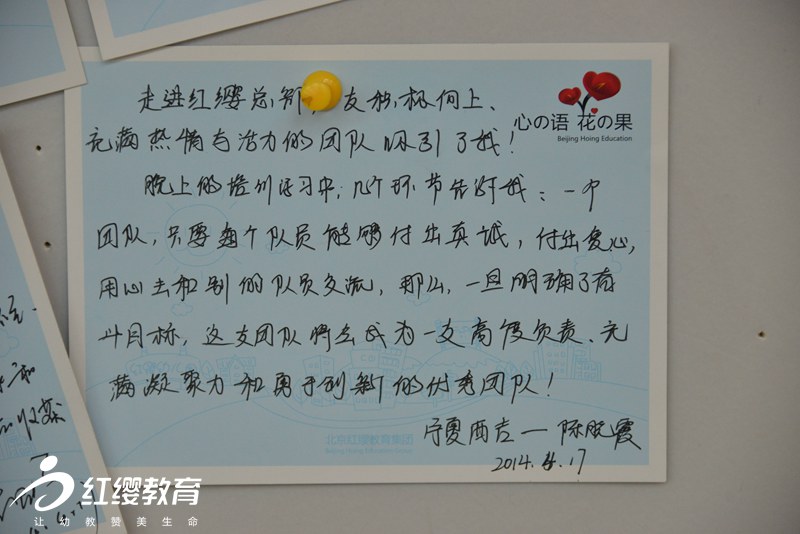 走进红缨总部,友积极向上、
心の语 花の果
Beijing Hoing Education
充满热情与活力的团队吸引了我!
晚上的培训学习中,几个环节告诉我:一个
团队,只要每个队员能够付出真诚,付出爱心,
用心去和别的队员交流,那么,一旦明确了奋
斗目标,这支团队将会成为一支高度负责、充
满凝聚力和勇于创新的优秀团队!
宁夏西吉——陈
2014.4.17
北京红缨教育集团
红缨教育
让幼教赞美生命